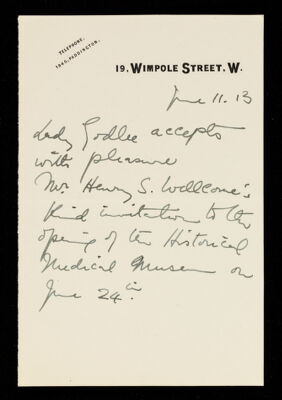 TELEPHONE,
1945, PADDINGTON.
19, WIMPOLE STREET, W.
June 11. 13
Lady Godlee accepts
with pleasure
Mr. Henry S. Wellcome's
kind invitation to the
opening of the Historical
Medical Museum on
June 24th.